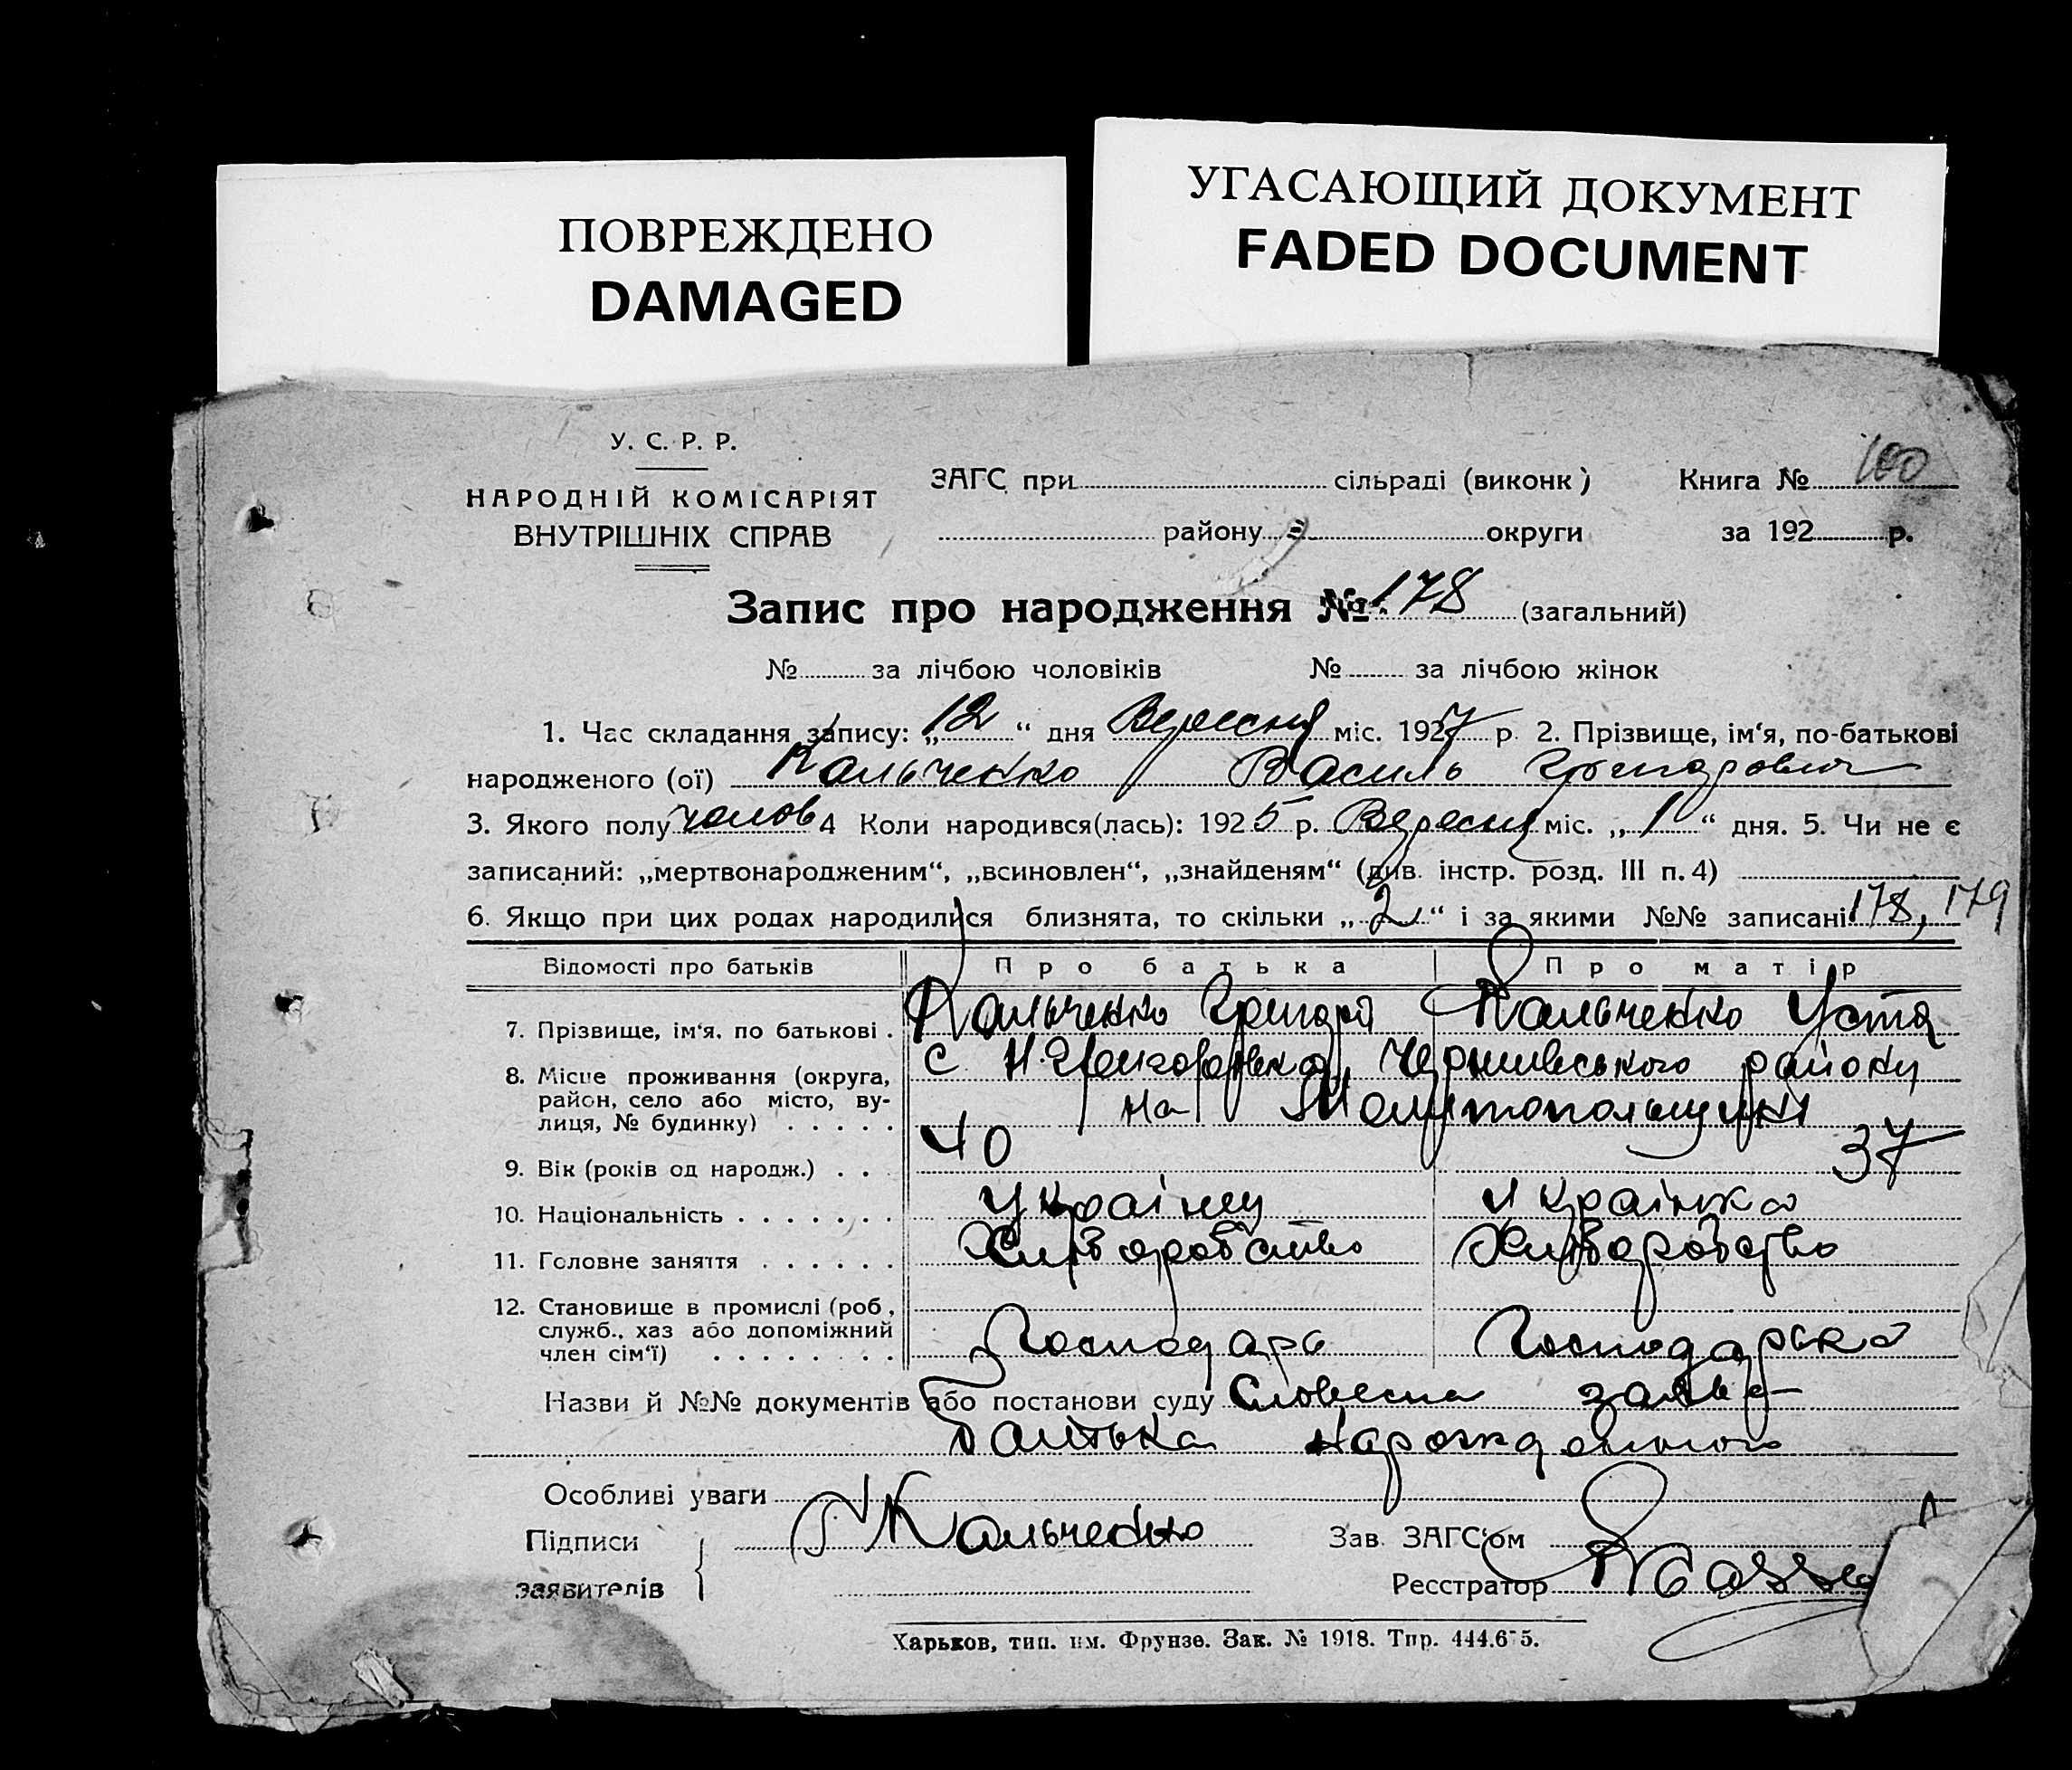 ПОВРЕЖДЕНО
DAMAGED
УГАСАЮЩИЙ ДОКУМЕНТ
FADED DOCUMENT
У. С. Р. Р.
НАРОДНІЙ КОМІСАРІЯТ
ВНУТРІШНІХ СПРАВ
ЗАГС при сільраді (виконк)
району округи
Книга № 100
за 192 р.
Запис про народження № 178 (загальний)
№ за лічбою чоловіків № за лічбою жінок
1. Час складання запису: „12“ дня Вересня міс. 1927 р. 2. Прізвище, ім‘я, по-батькові
народженого (ої) Кальченко Василь Григорович
3. Якого полу чолов 4 Коли народився(лась): 1925 р. Вересня міс. „1“ дня. 5. Чи не є
записаний: „мертвонародженим“, „всиновлен“, „знайденям“ (див. інстр. розд. III п. 4)
6. Якщо при цих родах народилися близнята, то скільки „2“ і за якими №№ записані 178, 179
Відомості про батьків Про батька Про матір
7. Прізвище, ім‘я, по батькові . Кальченко Григорій Кальченко Устя
8. Місце проживання (округа, район, село або місто, вулиця, № будинку) . . . . . с. Н. Григорівка, Чернивського району
на Мелітопольщині
9. Вік (років од народж.) . . . 40 37
10. Національність . . . . . . . Українец Українка
11. Головне заняття . . . . . . Хліборобство Хліборобство
12. Становище в промислі (роб., служб., хаз або допоміжний член сім‘ї) . . . . . . . . Господарь Господарька
Назви й №№ документів або постанови суду Словесна заява
батька нарожденого
Особливі уваги
Підписи
заявителів
Г Кальченко
Зав. ЗАГС‘ом
Ресстратор
Харьков, тип. им. Фрунзе. Зак. № 1918. Тир. 444.675.